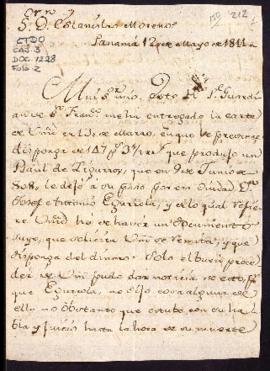 S.r D. Estanislao Moreno
212
CTDO
CAJ. 3
DOC. 1228
FOLS. 2
Panamá 12 de Mayo de 1811
Mui S.or mio, Este P. F. Guardi
an de S. Fran.co me ha entregado la carta
de Vmd de 15 de Marzo, en que le previene
disponga de 147 p.s 3½ r.s que produjo un
Baul de Zigarros, que en 9 de Junio de
808, le dejó á su paso por en Ciudad D.n
Josef Antonio Eguziola, y á lo qual refiere
Vmd ha de haver un documento
suyo, que solicita Vm se remita, y que
disponga del dinero. Solo el buen proce
der de Vm pudo dar noticia de esto, p.r
que Eguziola, no dijo cosa alguna de
ello, no obstante que estuvo con su ha
bla y juicio hasta la hora de su muerte